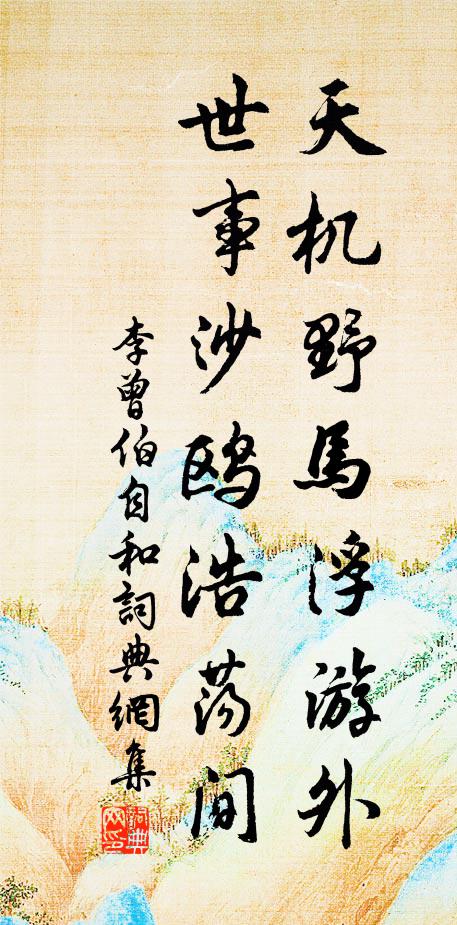 天机野馬浮游外
世事沙鸥浩荡间
李曾伯自和詞典網集
詞典